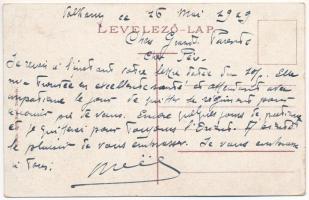 ce 26 Mai 1919
LEVELEZŐ-LAP.
Chers Grands Parents
Cher Père
Je reçois à l'instant votre lettre datée du 10/5. Elle
m'a trouvée en excellente santé et attendant avec
impatience le jour de quitter le régiment pour
près de vous. Encore quelques jours de patience
et je quitterai pour toujours l'Orient. A bientôt
le plaisir de vous embrasser. Je vous embrasse
à tous.